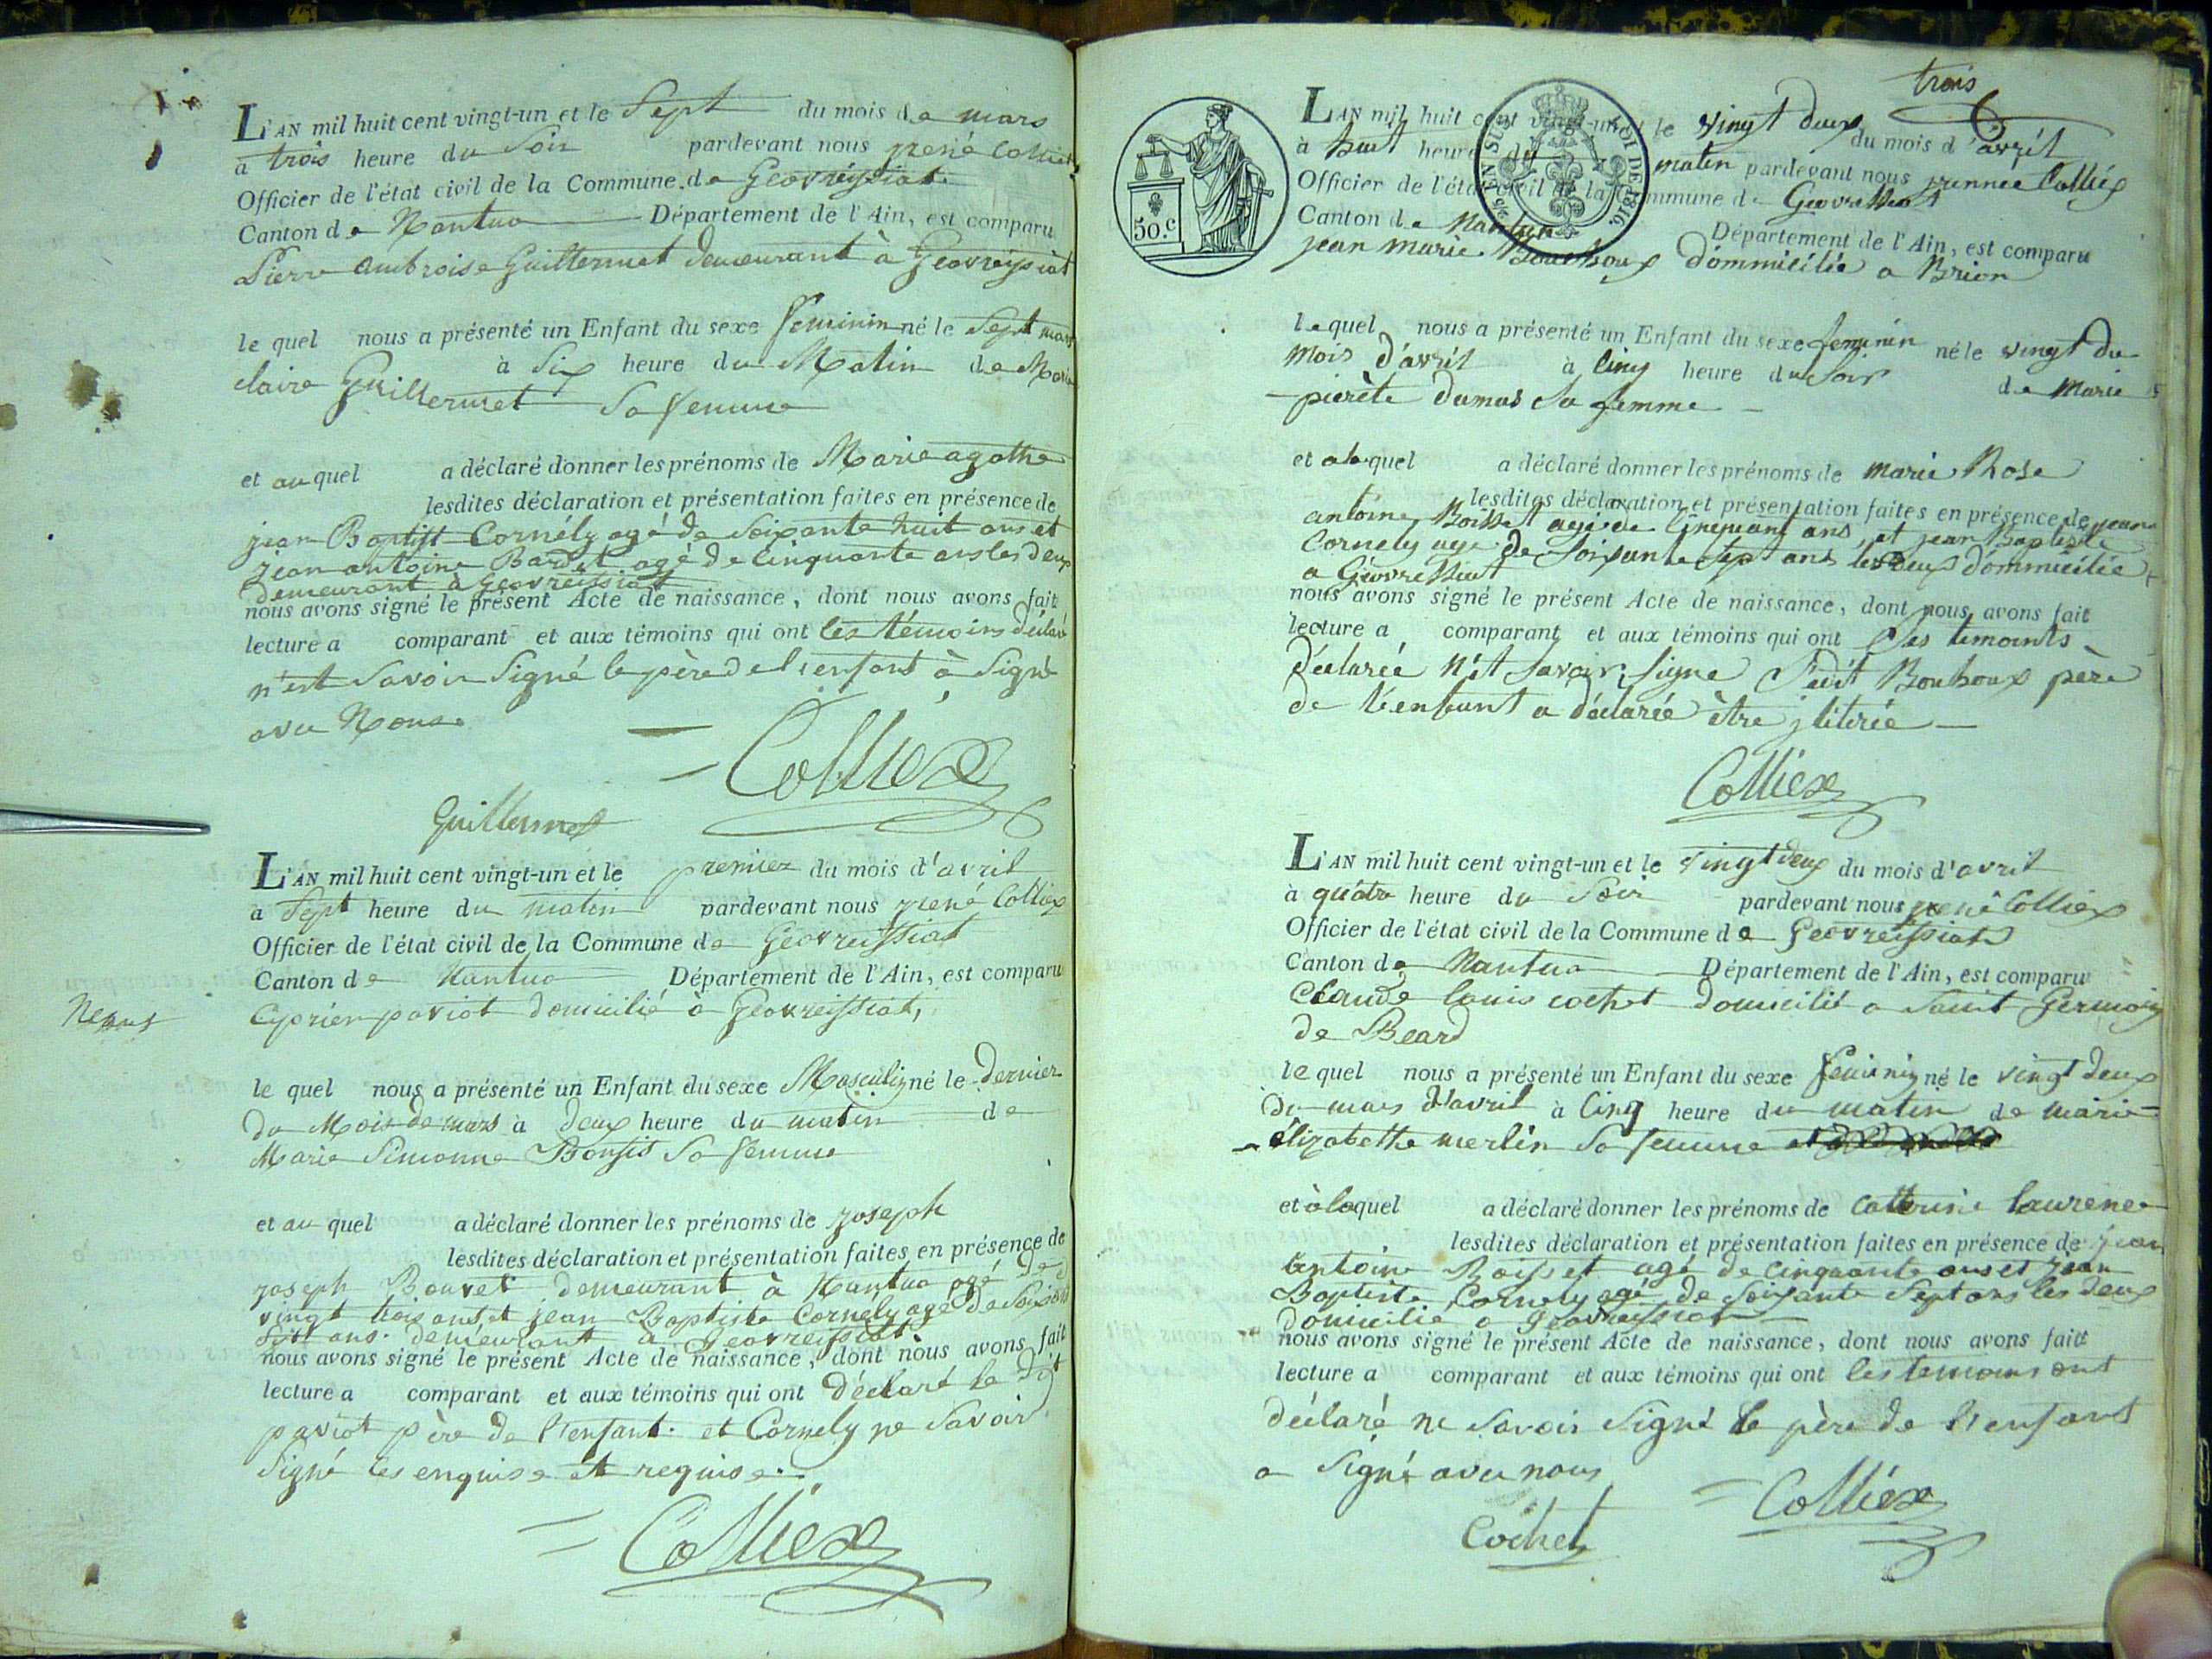 L'AN mil huit cent vingt-un et le Sept du mois de mars
a trois heure du Soir pardevant nous rené Colliex
Officier de l'état civil de la Commune de Geovreissiat
Canton de Nantua Département de l'Ain, est comparu
Pierre ambroise Guillermet demeurant à Geovreissiat
le quel nous a présenté un Enfant du sexe feminin né le Sept mars
à Six heure du Matin de Marie
claire Guillermet Sa femme
et au quel a déclaré donner les prénoms de Marie agathe
lesdites déclaration et présentation faites en présence de
jean Baptist Cornély agé de Soixante huit ans et
jean antoine Bardet agé de Cinquante ans les deux
demeurant à Geovreissiat
nous avons signé le présent Acte de naissance, dont nous avons fait
lecture a comparant et aux témoins qui ont les témoins déclaré
n'est Savoir Signé le père de l'enfant à Signé
avec Nous.
Colliex
Guillermet
L'AN mil huit cent vingt-un et le premier du mois d'avril
a Sept heure du matin pardevant nous rené Colliex
Officier de l'état civil de la Commune de Geovreissiat
Canton de Nantua Département de l'Ain, est comparu
Cyprien paviot domicilié à Geovreissiat,
le quel nous a présenté un Enfant du sexe Masculin né le Dernier
du Mois de mars à deux heure du matin de
Marie Simonne Sa femme
et au quel a déclaré donner les prénoms de joseph
lesdites déclaration et présentation faites en présence de
joseph Bouvet demeurant à Nantua agé de
vingt trois ans et jean Baptiste Cornély agé de Soixante
Sept ans. demeurant a Geovreissiat.
nous avons signé le présent Acte de naissance, dont nous avons fait
lecture a comparant et aux témoins qui ont déclaré le dit
paviot père de l'enfant. et Cornely ne Savoir
Signé les enquise et requise.
Colliex
trois
50.c
LOI DE 1816.
L'AN mil huit cent vingt-un et le vingt deux du mois d'avril
à huit heure du matin pardevant nous rennée Colliex
Officier de l'état civil de la Commune de Geovressiat
Canton de Nantua Département de l'Ain, est comparu
jean marie Bouchoux dommicilié a Brion
lequel nous a présenté un Enfant du sexe feminin né le vingt du
mois d'avril à Cinq heure du Soir de marie
pierète dumas Sa femme
et a la quel a déclaré donner les prénoms de marie Rose
lesdites déclaration et présentation faites en présence de jean
antoine Boisset agé de Cinquant ans, et jean Baptiste
Cornely age de Soixante Sept ans les deux dommicilie
a Geovressiat
nous avons signé le présent Acte de naissance, dont nous avons fait
lecture a comparant et aux témoins qui ont les temoints
déclarée n'ét Savoir signe Ledit Bouhoux père
de l'enfant a déclarée être jliterée
Colliex
L'AN mil huit cent vingt-un et le vingt deux du mois d'avril
à quatre heure du Soir pardevant nous rené Colliex
Officier de l'état civil de la Commune de Geovreissiat
Canton de Nantua Département de l'Ain, est comparu
Claude louis cochet domicilié a Saint Germain
de Beard
le quel nous a présenté un Enfant du sexe feminin né le vingt deux
du mois d'avril à Cinq heure du matin de marie
élizabethe merlin Sa femme
et à laquel a déclaré donner les prénoms de Catterine laurence
lesdites déclaration et présentation faites en présence de jean
Antoine Boisset agé de Cinquante ans et jean
Baptiste Cornely agé de Soixante Sept ans les deux
domicilié a Geovreissiat
nous avons signé le présent Acte de naissance, dont nous avons fait
lecture a comparant et aux témoins qui ont les temoins ont
déclaré ne Savoir Signé le père de l'enfant
a Signé avec nous
Colliex
Cochet